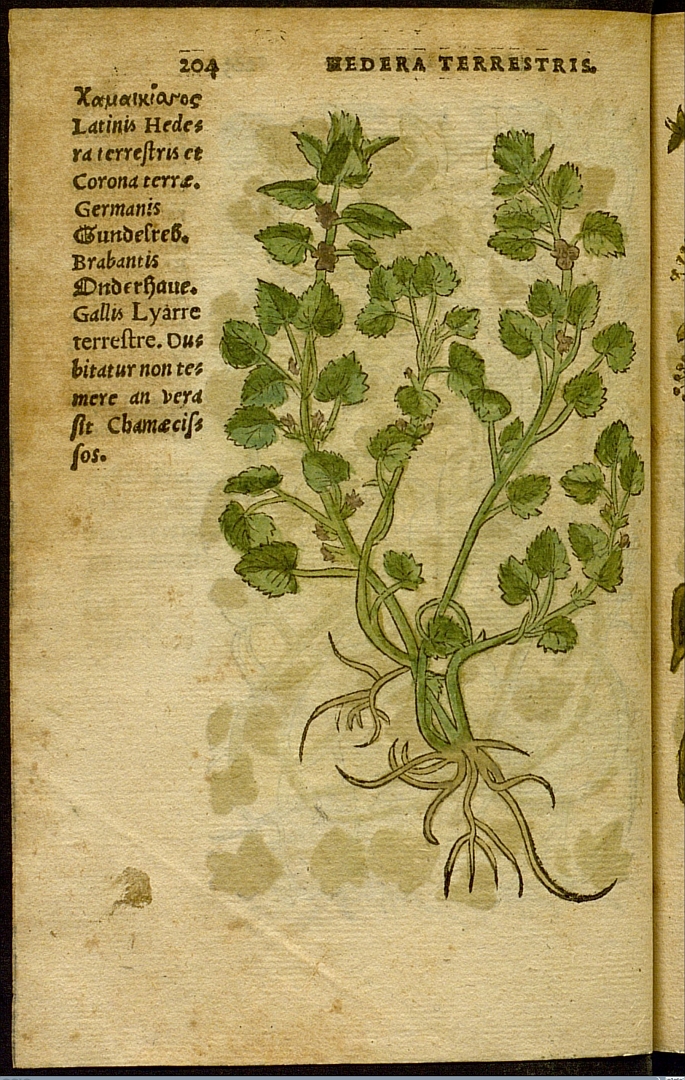 204 HEDERA TERRESTRIS.
Χαμαικίαρος
Latinis Hede⸗
ra terreſtris et
Corona terræ.
Germanis
Gundelreb.
Brabantis
Onderhaue.
Gallis Lyarre
terreſtre. Du⸗
bitatur non te⸗
mere an vera
ſit Chamæciſ⸗
ſos.